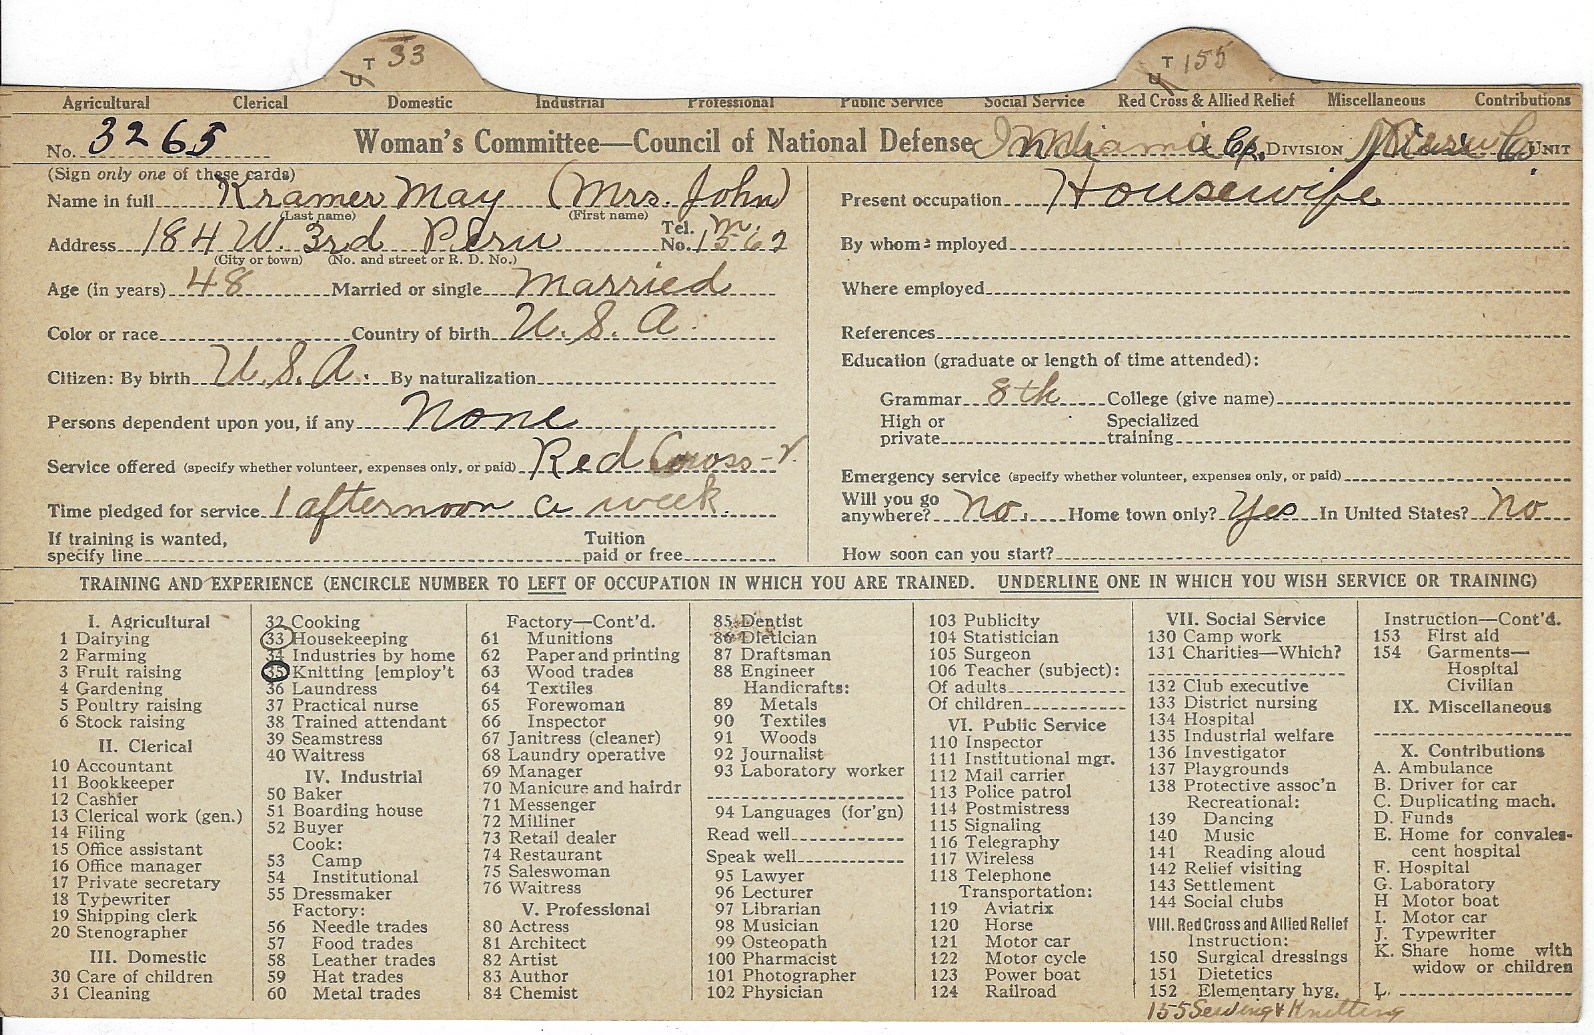 T 33
T 155
Agricultural Clerical Domestic Industrial Professional Public Service Social Service Red Cross & Allied Relief Miscellaneous Contributions
No. 3265 Woman's Committee—Council of National Defense Indiana DIVISION UNIT
(Sign only one of these cards)
Name in full Kramer May (Mrs. John)
(Last name) (First name)
Address 184 W. 3rd Peru Tel. No. 1562
(City or town) (No. and street or R. D. No.)
Age (in years) 48 Married or single Married
Color or race Country of birth U. S. A.
Citizen: By birth U. S. A. By naturalization
Persons dependent upon you, if any None
Service offered (specify whether volunteer, expenses only, or paid) Red Cross - v
Time pledged for service 1 afternoon a week
If training is wanted, specify line Tuition paid or free
Present occupation Housewife
By whom employed
Where employed
References
Education (graduate or length of time attended):
Grammar 8th College (give name)
High or private Specialized training
Emergency service (specify whether volunteer, expenses only, or paid)
Will you go anywhere? No. Home town only? Yes In United States? No
How soon can you start?
TRAINING AND EXPERIENCE (ENCIRCLE NUMBER TO LEFT OF OCCUPATION IN WHICH YOU ARE TRAINED. UNDERLINE ONE IN WHICH YOU WISH SERVICE OR TRAINING)
I. Agricultural
1 Dairying
2 Farming
3 Fruit raising
4 Gardening
5 Poultry raising
6 Stock raising
II. Clerical
10 Accountant
11 Bookkeeper
12 Cashier
13 Clerical work (gen.)
14 Filing
15 Office assistant
16 Office manager
17 Private secretary
18 Typewriter
19 Shipping clerk
20 Stenographer
III. Domestic
30 Care of children
31 Cleaning
32 Cooking
33 Housekeeping
34 Industries by home
35 Knitting [employ't
36 Laundress
37 Practical nurse
38 Trained attendant
39 Seamstress
40 Waitress
IV. Industrial
50 Baker
51 Boarding house
52 Buyer
Cook:
53 Camp
54 Institutional
55 Dressmaker
Factory:
56 Needle trades
57 Food trades
58 Leather trades
59 Hat trades
60 Metal trades
Factory—Cont'd.
61 Munitions
62 Paper and printing
63 Wood trades
64 Textiles
65 Forewoman
66 Inspector
67 Janitress (cleaner)
68 Laundry operative
69 Manager
70 Manicure and hairdr
71 Messenger
72 Milliner
73 Retail dealer
74 Restaurant
75 Saleswoman
76 Waitress
V. Professional
80 Actress
81 Architect
82 Artist
83 Author
84 Chemist
85 Dentist
86 Dietician
87 Draftsman
88 Engineer
Handicrafts:
89 Metals
90 Textiles
91 Woods
92 Journalist
93 Laboratory worker
94 Languages (for'gn)
Read well
Speak well
95 Lawyer
96 Lecturer
97 Librarian
98 Musician
99 Osteopath
100 Pharmacist
101 Photographer
102 Physician
103 Publicity
104 Statistician
105 Surgeon
106 Teacher (subject):
Of adults
Of children
VI. Public Service
110 Inspector
111 Institutional mgr.
112 Mail carrier
113 Police patrol
114 Postmistress
115 Signaling
116 Telegraphy
117 Wireless
118 Telephone
Transportation:
119 Aviatrix
120 Horse
121 Motor car
122 Motor cycle
123 Power boat
124 Railroad
VII. Social Service
130 Camp work
131 Charities—Which?
132 Club executive
133 District nursing
134 Hospital
135 Industrial welfare
136 Investigator
137 Playgrounds
138 Protective assoc'n
Recreational:
139 Dancing
140 Music
141 Reading aloud
142 Relief visiting
143 Settlement
144 Social clubs
VIII. Red Cross and Allied Relief
Instruction:
150 Surgical dressings
151 Dietetics
152 Elementary hyg.
155 Sewing & Knitting
Instruction—Cont'd.
153 First aid
154 Garments—
Hospital
Civilian
IX. Miscellaneous
X. Contributions
A. Ambulance
B. Driver for car
C. Duplicating mach.
D. Funds
E. Home for convales-
cent hospital
F. Hospital
G. Laboratory
H Motor boat
I. Motor car
J. Typewriter
K. Share home with
widow or children
L.